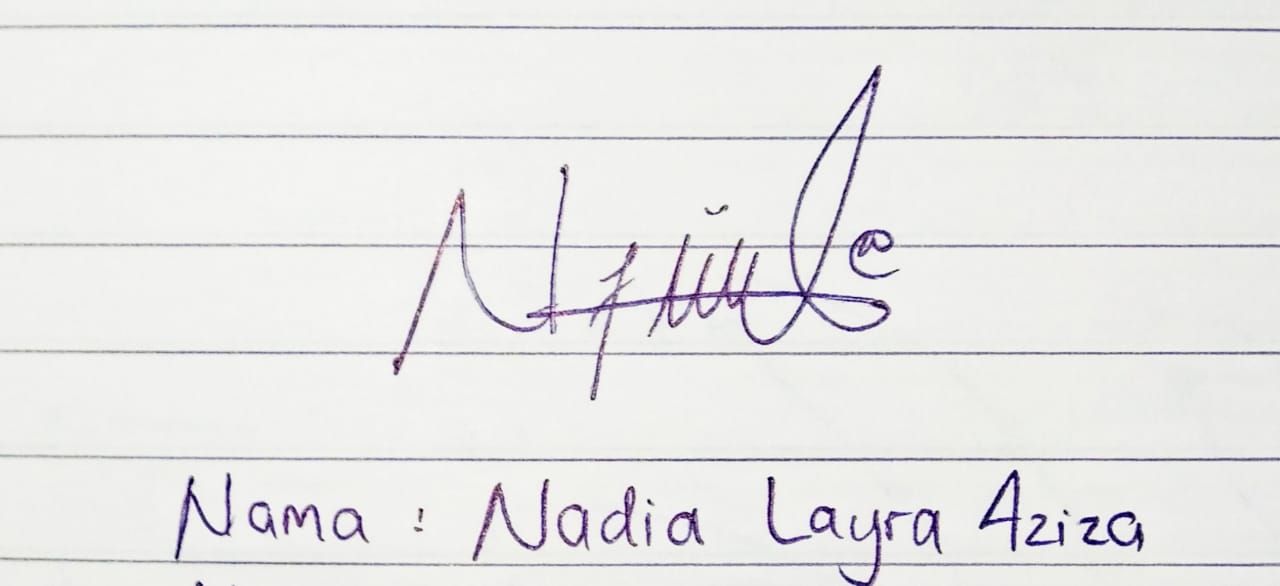 Nama : Nadia Layra Aziza